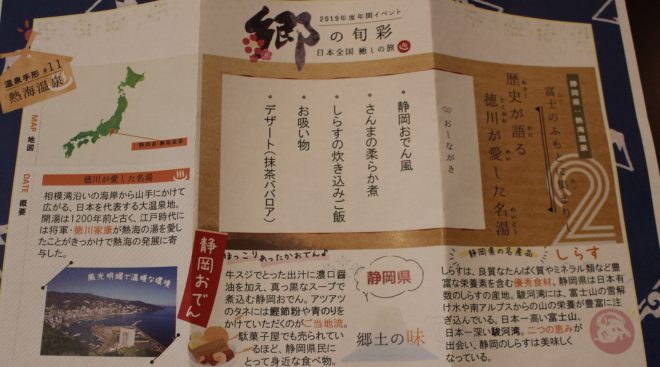 2019年度年間イベント
郷の旬彩
日本全国 癒しの旅
温泉手形 #11
熱海温泉
MAP 地図
静岡県 熱海温泉
DATE 概要
徳川が愛した名湯
相模湾沿いの海岸から山手にかけて
広がる、日本を代表する大温泉地。
開湯は1200年前と古く、江戸時代に
は将軍・徳川家康が熱海の湯を愛し
たことがきっかけで熱海の発展に寄
与した。
風光明媚で温暖な環境
静岡県・熱海温泉
富士のふもとに
歴史が語る
徳川が愛した名湯
2
おしながき
・静岡おでん風
・さんまの柔らか煮
・しらすの炊き込みご飯
・お吸い物
・デザート(抹茶ババロア)
静岡おでん
ほっこりあったかおでん♪
牛スジでとった出汁に濃口醤
油を加え、真っ黒なスープで
煮込む静岡おでん。アツアツ
のタネには鰹節粉や青のりを
かけていただくのがご当地流。
駄菓子屋でも売られてい
るほど、静岡県民に
とって身近な食べ物。
静岡県
郷土の味
静岡県の名産品
しらす
しらすは、良質なたんぱく質やミネラル類など豊
富な栄養素を含む優秀食材。静岡県は日本有
数のしらすの産地。駿河湾には、富士山の雪解
け水や南アルプスからの山の栄養が豊富に注
ぎ込んでいる。日本一高い富士山、
日本一深い駿河湾。二つの恵みが
出会い、静岡のしらすは美味しく
なっている。